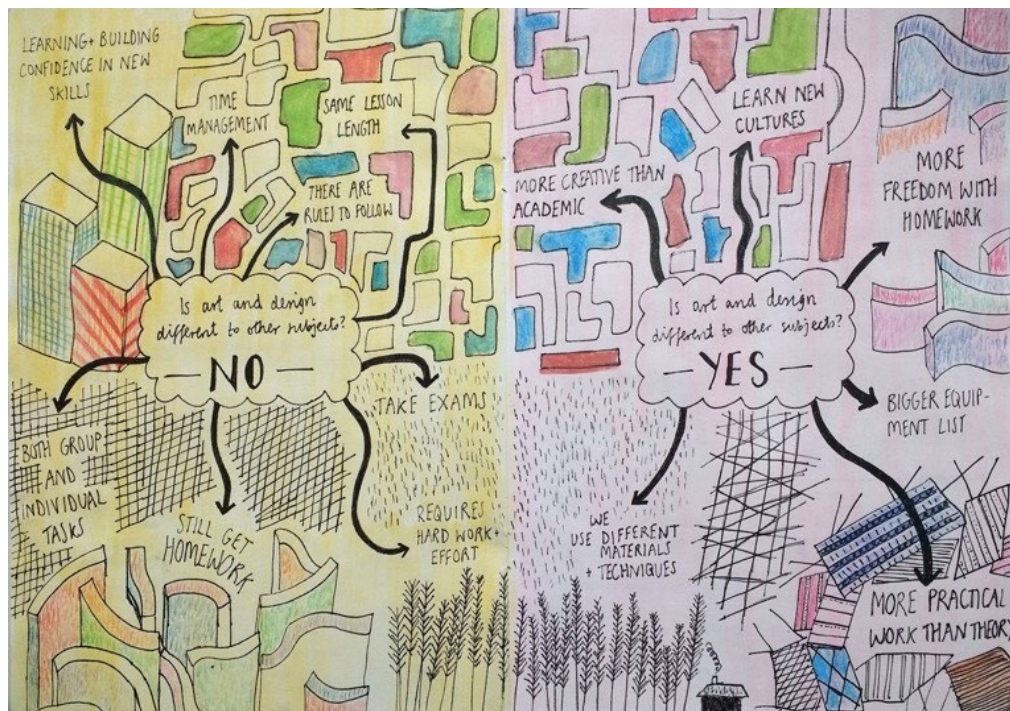 LEARNING + BUILDING
CONFIDENCE IN NEW
SKILLS
TIME
MANAGEMENT
SAME LESSON
LENGTH
THERE ARE
RULES TO FOLLOW
Is art and design
different to other subjects?
— NO —
TAKE EXAMS
BOTH GROUP
AND
INDIVIDUAL
TASKS
STILL GET
HOMEWORK
REQUIRES
HARD WORK +
EFFORT
LEARN NEW
CULTURES
MORE CREATIVE THAN
ACADEMIC
MORE
FREEDOM WITH
HOMEWORK
Is art and design
different to other subjects?
— YES —
BIGGER EQUIP-
MENT LIST
WE
USE DIFFERENT
MATERIALS
+ TECHNIQUES
MORE PRACTICAL
WORK THAN THEORY